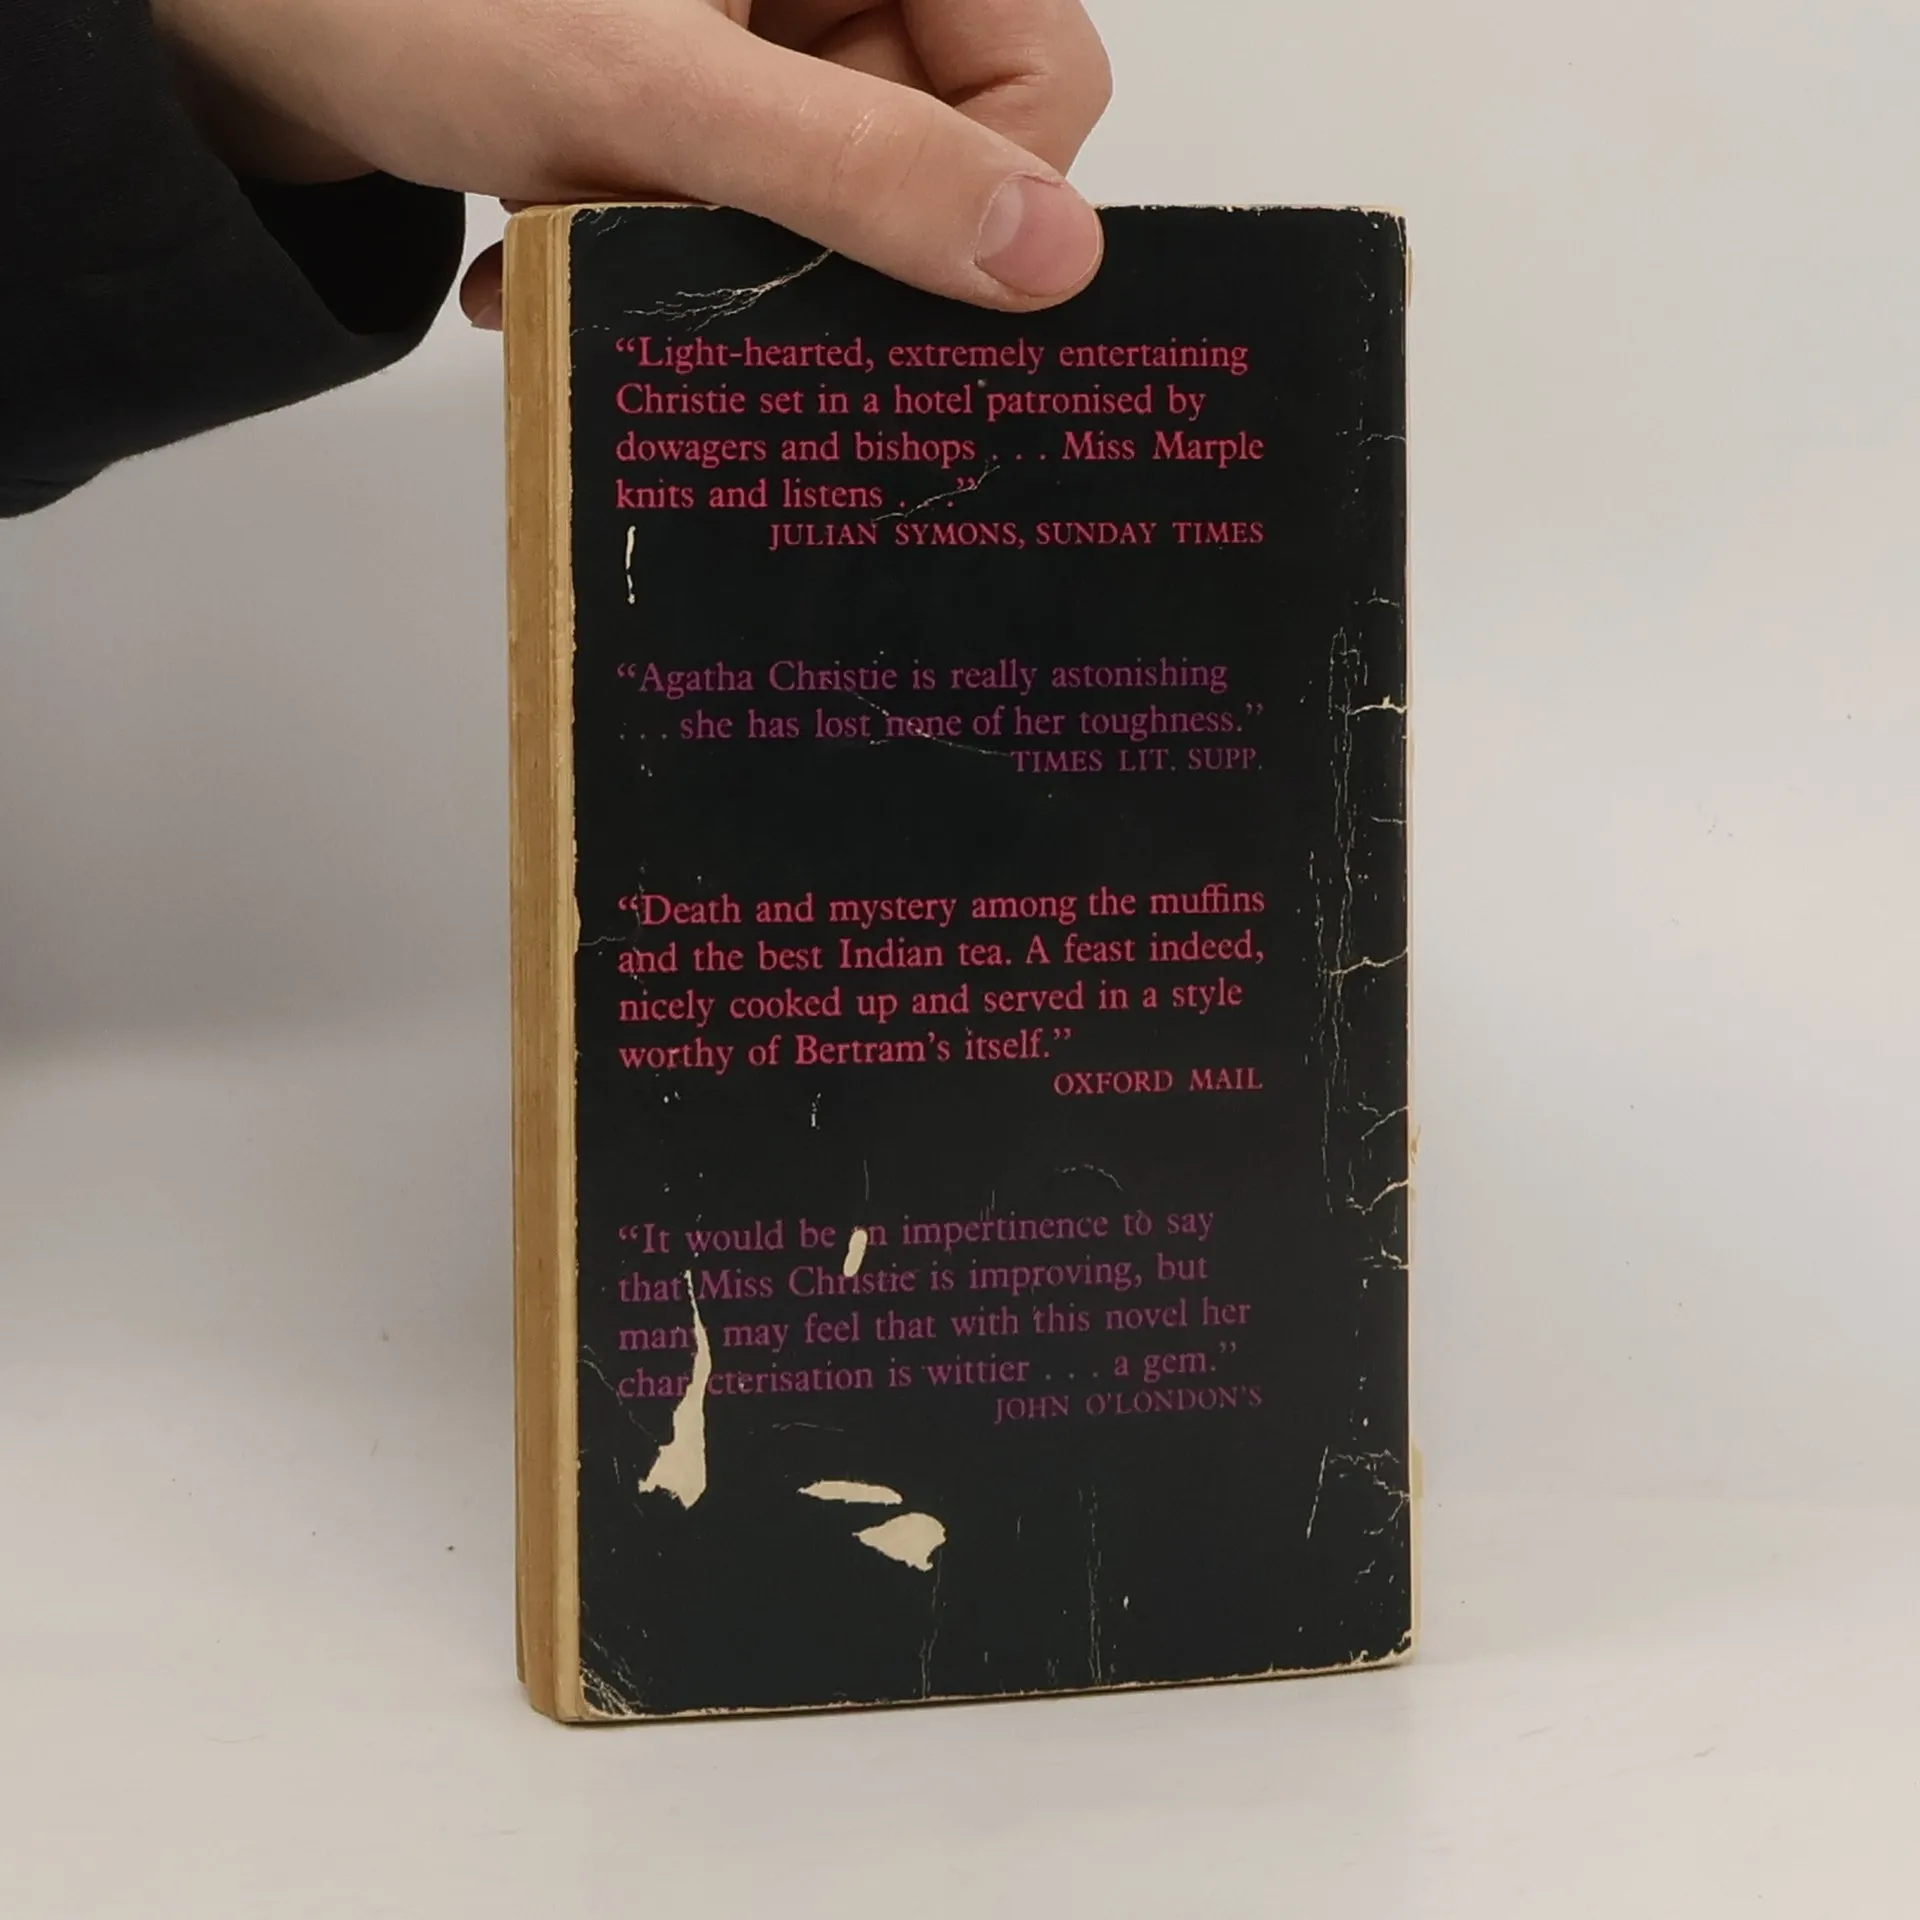 “Light-hearted, extremely entertaining
Christie set in a hotel patronised by
dowagers and bishops . . . Miss Marple
knits and listens . . .”
JULIAN SYMONS, SUNDAY TIMES
“Agatha Christie is really astonishing
. . . she has lost none of her toughness.”
TIMES LIT. SUPP.
“Death and mystery among the muffins
and the best Indian tea. A feast indeed,
nicely cooked up and served in a style
worthy of Bertram’s itself.”
OXFORD MAIL
“It would be an impertinence to say
that Miss Christie is improving, but
many may feel that with this novel her
characterisation is wittier . . . a gem.”
JOHN O’LONDON’S